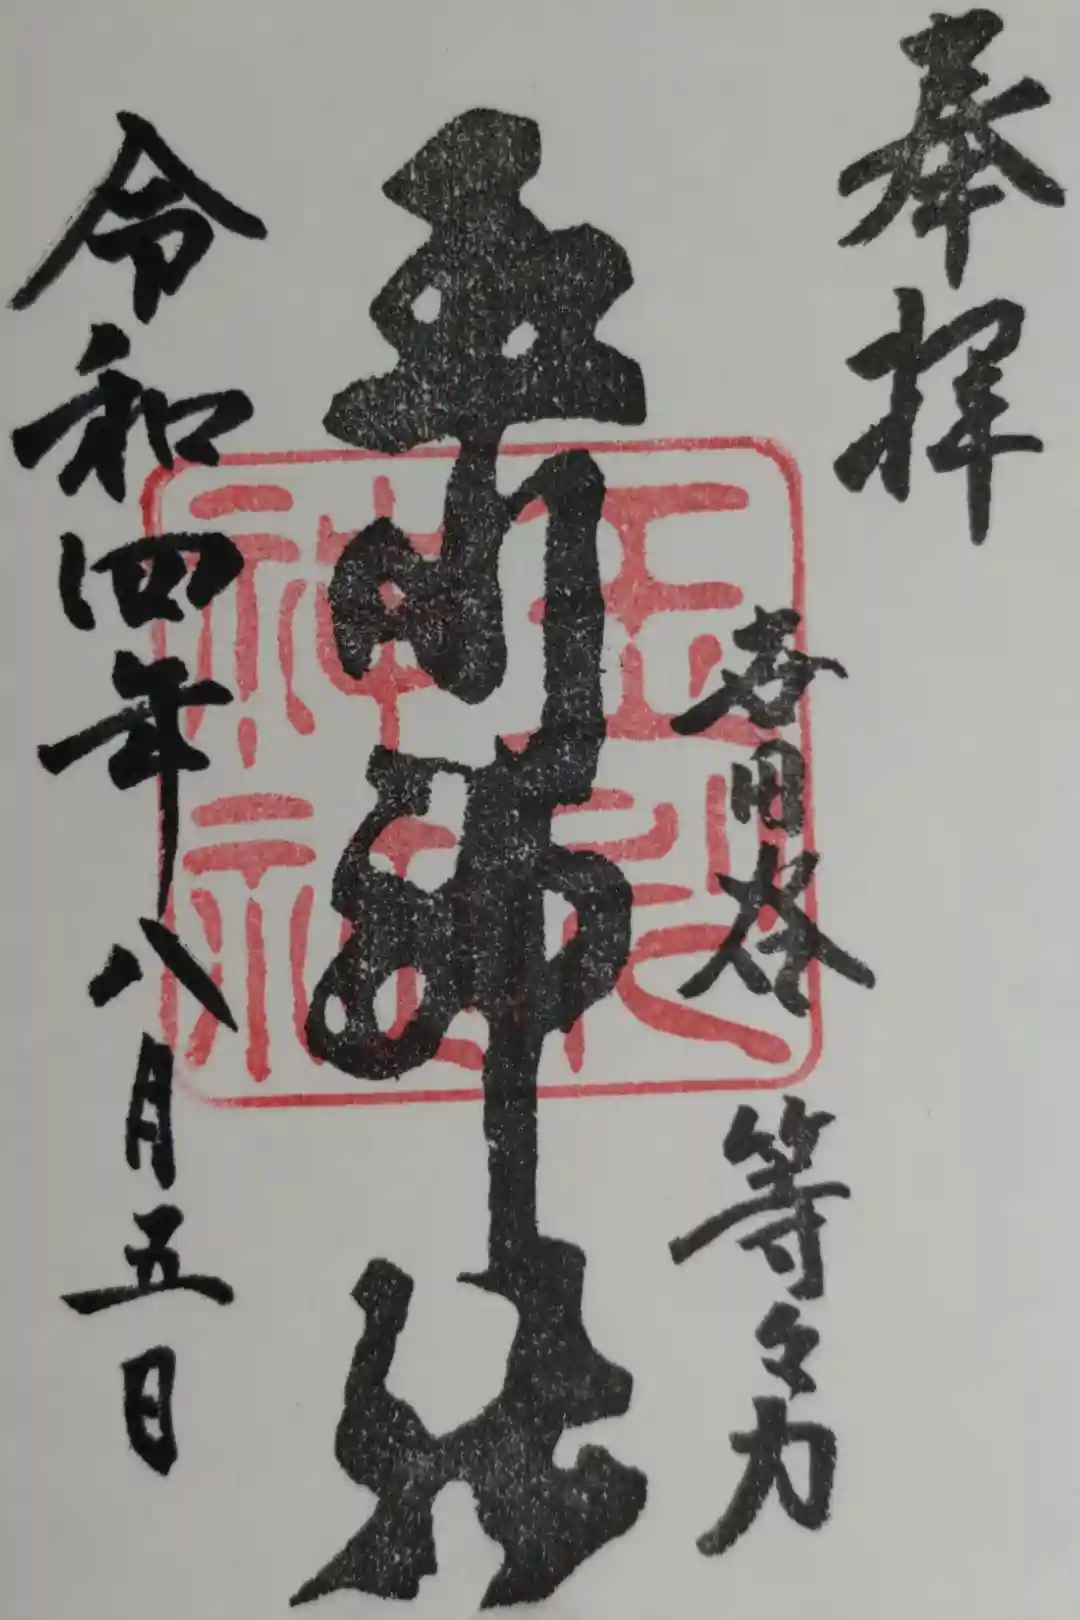 奉拝
世田谷 等々力
玉川神社
令和四年八月五日